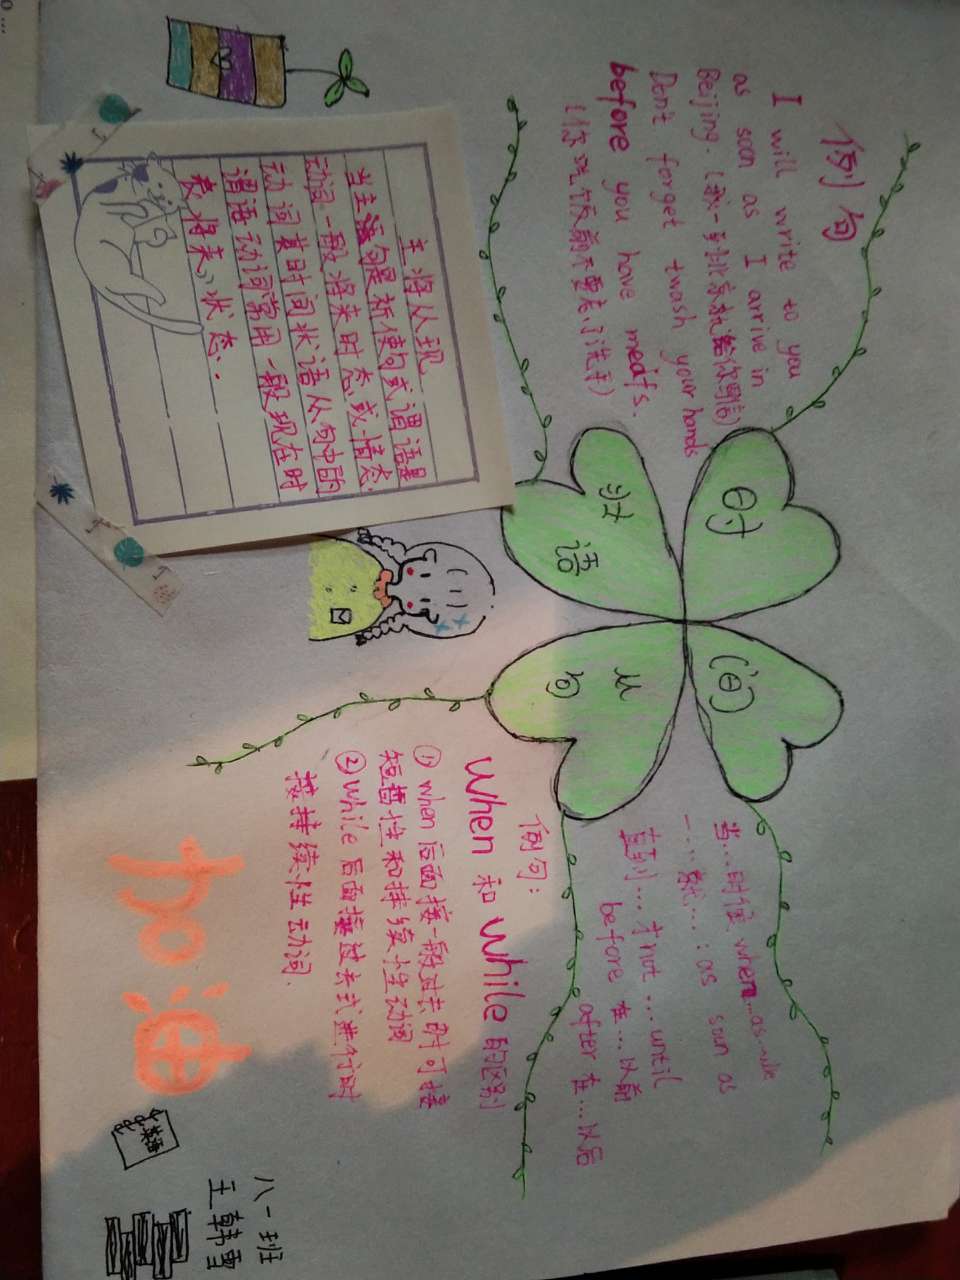 例句
I will write to you
as soon as I arrive in
Beijing.(我一到北京就给你写信)
Dont forget twash your hands
before you have meats.
(你吃饭前不要忘了洗手)
时
(间)
状语
从句
当...时候 when...as
一...就...:as sun as
直到...才not...until
before 在...以前
after 在...以后
主将从现
当主语句是新使句式谓语是
动词一般将来时态或情态
动词其时间状语从句中的
谓语动词常用一般现在时
表"将来"状态..
例句:
when 和 while 的区别
①when后面接一般过去时可接
短暂性和持续性动词
②while后面接过去式进行时
接持续性动词.
加油
英语
八一班
王韩雪